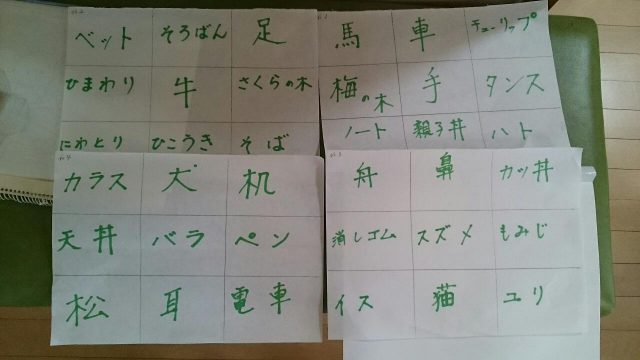 ベット そろばん 足
ひまわり 牛 さくらの木
にわとり ひこうき そば
馬 車 チューリップ
梅の木 手 タンス
ノート 親子丼 ハト
カラス 犬 机
天丼 バラ ペン
松 耳 電車
舟 鼻 カツ丼
消しゴム スズメ もみじ
イス 猫 ユリ